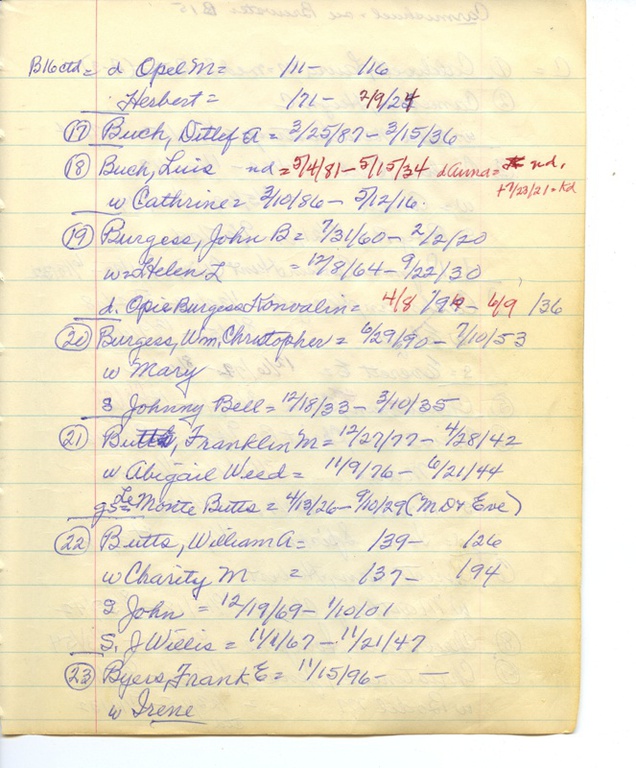 B16ctd = d Opel M = /11 - /16
Herbert = /71 - 2/9/24
17 Buch, Ditlef A = 3/25/87 - 3/15/36
18 Buch, Luis nd = 5/4/81 - 5/15/34 d Anna = nd.
+7/23/21 = Kd
w Cathrine = 3/10/86 - 5/12/16.
19 Burgess, John B = 7/31/60 - 2/2/20
w = Helen L = 12/8/64 - 9/22/30
d. Opie Burgess Konvalin = 4/8 /94 - 6/9 /36
20 Burgess, Wm. Christopher = 6/29/90 - 7/10/53
w Mary
s Johnny Bell = 12/18/33 - 3/10/35
21 Butts, Franklin M = 12/27/77 - 4/28/42
w Abigail Weed = 11/9/76 - 6/21/44
gs = Le Monte Butts = 4/13/26 - 9/10/29 (MD & Eve)
22 Butts, William A = /39 - /26
w Charity M = /37 - /94
S John = 12/19/69 - 1/10/01
S. J Willis = 11/1/67 - 11/21/47
23 Byers, Frank E = 11/15/96 - —
w Irene